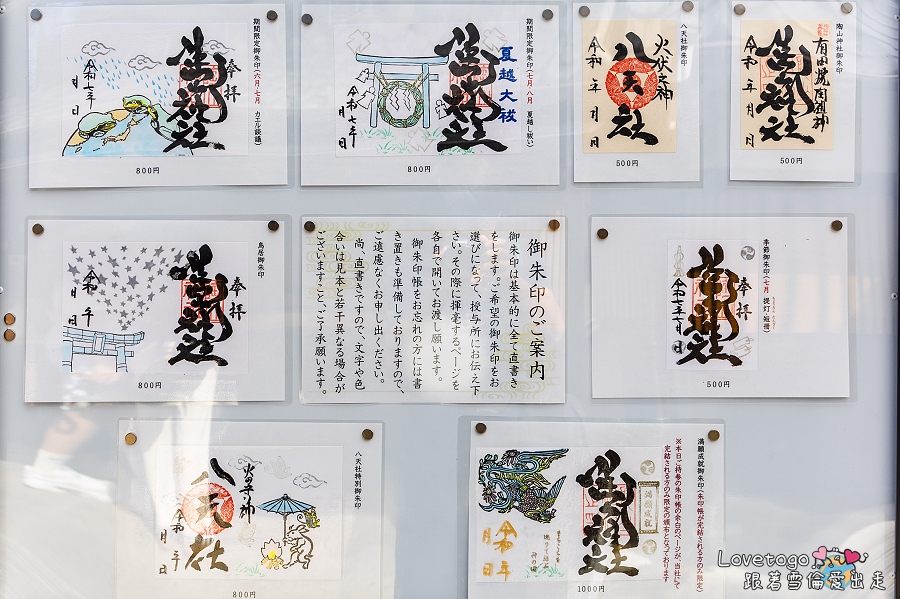 期間限定御朱印(六月・七月 カエル談議)
奉拝
令和七年
月 日
800円
期間限定御朱印(七月・八月 夏越し祓い)
夏越大祓
令和七年
月 日
800円
八天社御朱印
火伏之神
八天社
令和 年 月 日
500円
陶山神社御朱印
有田焼陶祖神
令和 年 月 日
500円
鳥居御朱印
奉拝
令和 年
月 日
800円
御朱印のご案内
御朱印は基本的に全て直書き
をします。ご希望の御朱印をお
選びになって、授与所にお伝え下
さい。その際に揮毫するページを
各自で開いてお渡し願います。
御朱印帳をお忘れの方には書
き置きも準備しておりますので、
ご遠慮なくお申し出ください。
尚、直書きですので、文字や色
合いは見本と若干異なる場合が
ございますこと、ご了承願います。
季節御朱印(七月 提灯・短冊)
奉拝
令和七年七月 日
500円
八天社特別御朱印
火の守り神
八天社
令和 年
月 日
800円
満願成就御朱印(朱印帳が完結される方のみ限定)
※本日ご持参の朱印帳の余白のページが、当社にて
完結される方のみ限定の頒布となっております
満願成就
令和 年
月 日
1000円
Lovetogo
跟著雪倫愛出走